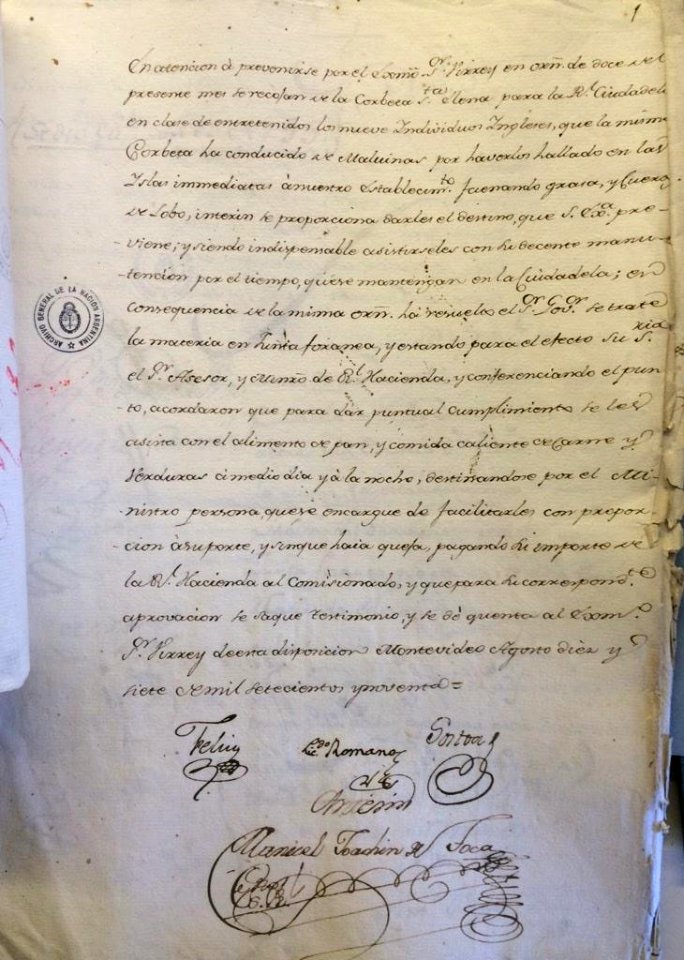 1
En atencion à prevenirse por el Exmõ. Sr. Virrey en orñ. de doce del
presente mes se recojan de la Corbeta Sta. Elena para la Rl. Ciudadela
en clase de entretenidos los nueve Individuos Ingleses, que la misma
Corbeta ha conducido de Malvinas por haverlos hallado en las
Islas immediatas à nuestro Establecimto. faenando grasa, y Cueros
de Lobo, interin se proporciona darles el destino, que S. Exa. pre-
-viene; y siendo indispensable asistirseles con su decente manu-
-tencion por el tiempo, que se mantengan en la Ciudadela; en
consequencia de la misma orñ. há resuelto el Sr. Govr. se trate
la materia en Junta foranea, y estando para el efecto su Sria.
el Sr. Asesor, y Minro. de Rl. Hacienda, y conferenciando el pun-
to, acordaron que para dar puntual cumplimiento se les
asista con el alimento de pan, y comida caliente de Carne y
Verduras à medio dia y à la noche, destinandose por el Mi-
-nistro persona, que se encargue de facilitarles con propor-
cion à su porte, y sin que haia quexa, pagando su importe de
la Rl. Hacienda al Comisionado, y que para su correspondte.
aprovacion se saque testimonio, y se dè quenta al Exmo.
Sr. Virrey de esta disposicion Montevideo Agosto diez y
siete de mil setecientos y noventa=
Feliu
Lizdo. Romano
Sostoa
Ante mi
Manuel Joachin de Toca
ARCHIVO GENERAL DE LA NACION ARGENTINA